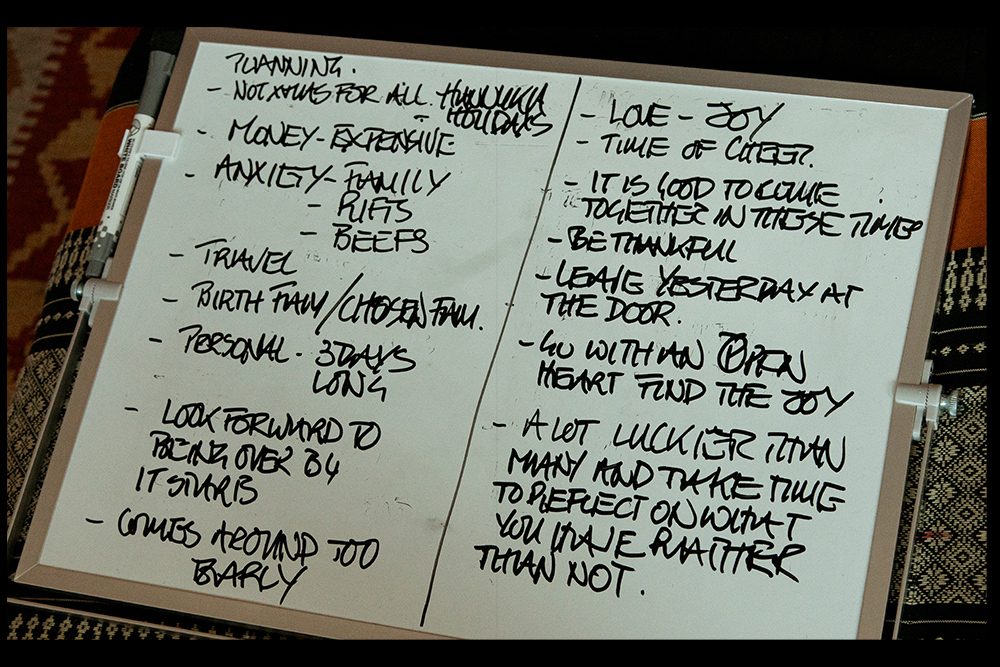 PLANNING.
- NOT XMAS FOR ALL. HUNUKKA
HOLIDAYS
- MONEY-EXPENSIVE
- ANXIETY-FAMILY
- RIFTS
- BEEFS
- TRAVEL
- BIRTH FAM/CHOSEN FAM.
- PERSONAL. 3 DAYS
LONG
- LOOK FORWARD TO
BEING OVER B4
IT STARTS
- COMES AROUND TOO
EARLY
- LOVE - JOY
- TIME OF CHEER.
- IT IS GOOD TO COME
TOGETHER IN THESE TIMES
- BE THANKFUL
- LEAVE YESTERDAY AT
THE DOOR.
- GO WITH AN OPEN
HEART FIND THE JOY
- A LOT LUCKIER THAN
MANY AND TAKE TIME
TO REFLECT ON WHAT
YOU HAVE RATHER
THAN NOT.